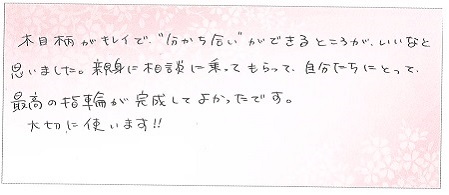 木目柄がキレイで、"分かち合い"ができるところが、いいなと
思いました。親身に相談に乗ってもらって、自分たちにとって、
最高の指輪が完成してよかったです。
大切に使います!!